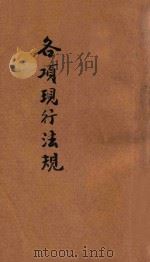 各項現行法規
mtoou.info(mtoou.com)